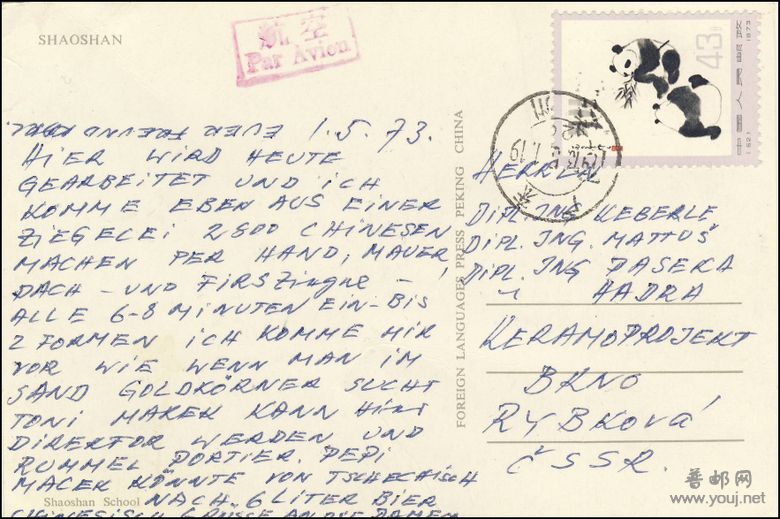 SHAOSHAN
航空
Par Avion
43分
(521)
1973
中国人民邮政
EUER FREUND
1.5.73.
HIER WIRD HEUTE
GEARBEITET UND ICH
KOMME EBEN AUS EINER
ZIEGELEI 2800 CHINESEN
MACHEN PER HAND, MAUER,
DACH - UND FIRSTZIEGEL -
ALLE 6-8 MINUTEN EIN-BIS
2 FORMEN ICH KOMME MIR
VOR WIE WENN MAN IM
SAND GOLDKÖRNER SUCHT
TONI MAREK KANN HIER
DIREKTOR WERDEN UND
RUMMEL PORTIER. PEPI
MACEK KÖNNTE VON TSCHECHISCH
NACH 6 LITER BIER
CHINESISCH GRÜSSE AN DIE DAMEN
Shaoshan School
FOREIGN LANGUAGES PRESS PEKING CHINA
HERREN
DIPL. ING KEBERLE
DIPL. ING. MATTUŠ
DIPL. ING PASEKA
" HADRA
KERAMOPROJEKT
BRNO
RYBKOVÁ
ČSSR.
普邮网
www.youj.net